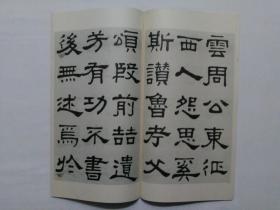 雲周公東征
西人怨思奚
斯讚魯考父
頌殷前喆遺
芳有功不書
後無述焉於